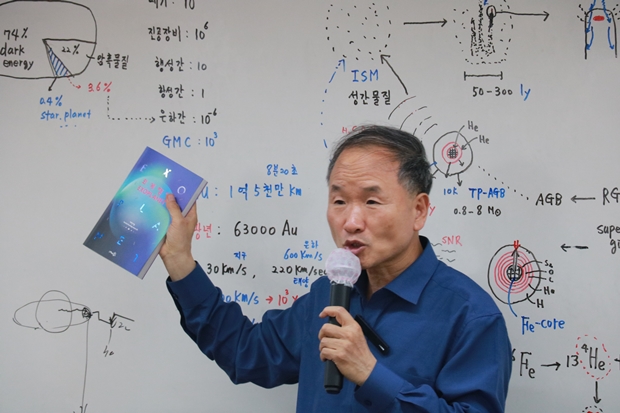 74%
dark
energy
22%
암흑물질
3.6%
0.4%
star, planet
대기 :
진공장비 : 10⁶
행성간 : 10
항성간 : 1
은하간 : 10⁻⁶
GMC : 10³
ISM
성간물질
50-300 ly
He
He
H
TP-AGB
0.8-8 M⊙
AGB
RG
8분20초
: 1억 5천만 km
광년 : 63000 Au
지구
30 km/s ,
은하
600 km/s
220 km/sec
태양
SNR
He
H
Fe-core
Fe
13 ⁴He